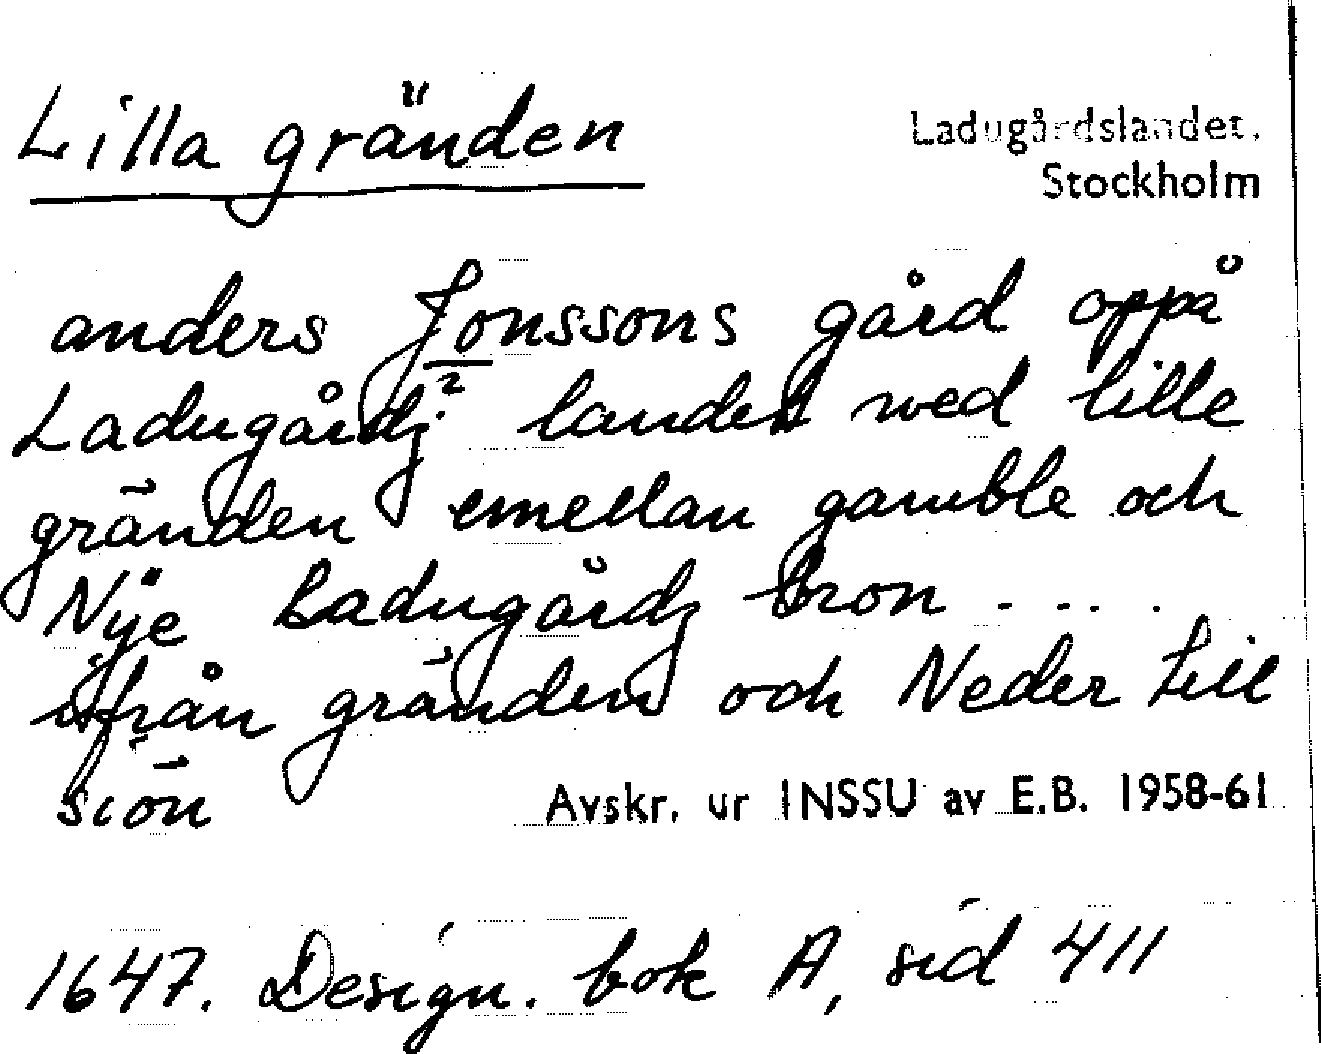 Lilla gränden
Ladugårdslandet.
Stockholm
anders Jonssons gård oppå
Ladugårdz landet wed lille
gränden emellan gamble och
Nÿe Ladugårdz bron ....
ifrån gränden och Neder till
siön
Avskr. ur INSSU av E.B. 1958-61
1647. Design. bok A, sid 411